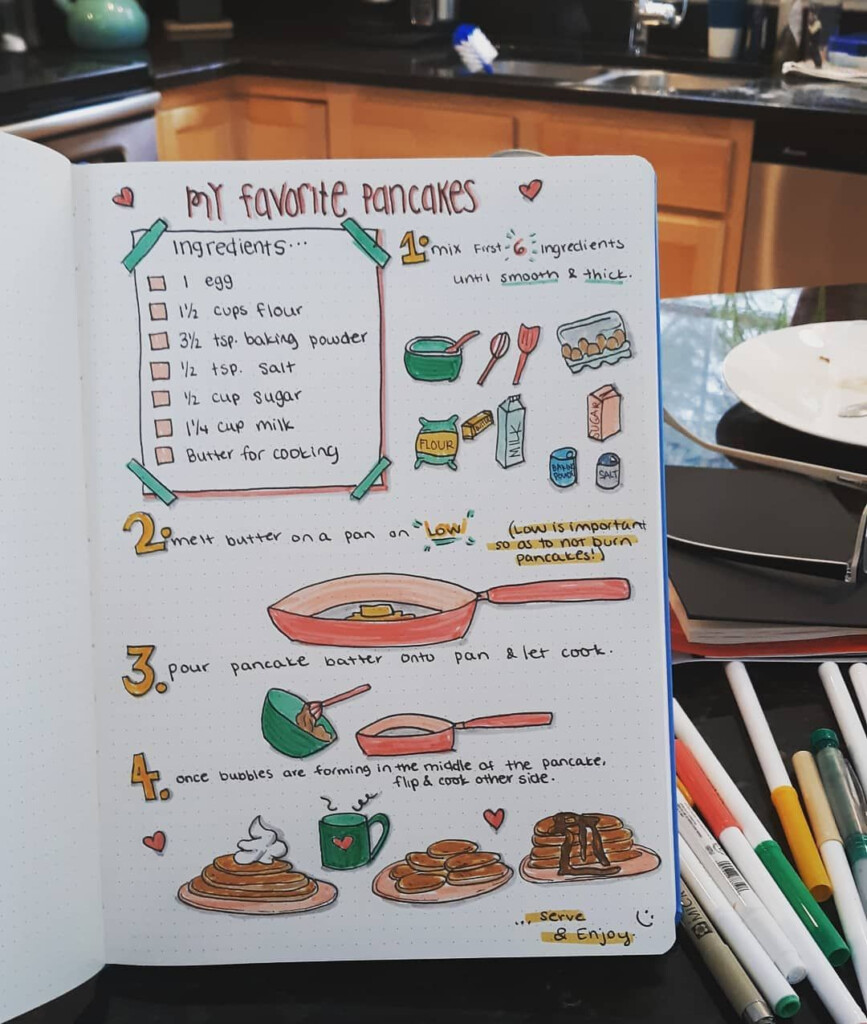 My favorite pancakes
Ingredients...
1 egg
1½ cups flour
3½ tsp. baking powder
½ tsp. salt
½ cup sugar
1¼ cup milk
Butter for cooking
1. mix First 6 Ingredients
until smooth & thick.
FLOUR
MILK
SUGAR
SALT
2. melt butter on a pan on "Low"
(Low is important
so as to not burn
pancakes!)
3. pour pancake batter onto pan & let cook.
4. once bubbles are forming in the middle of the pancake,
flip & cook other side.
...serve
& Enjoy.